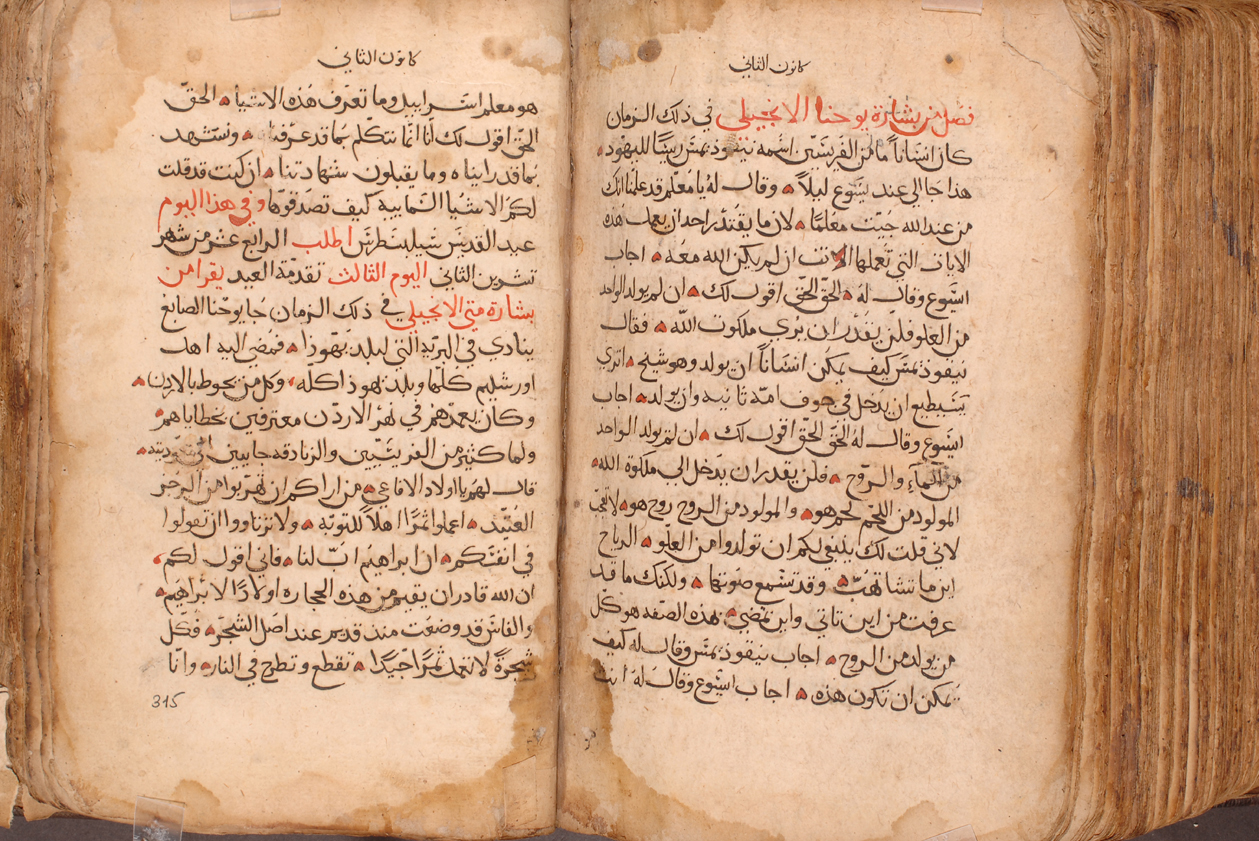 كانون الثاني
فصل من بشارة يوحنا الانجيلي في ذلك الزمان
كان انساناً ما من الفريسيين اسمه نيقوذيمس رييسًا لليهود
هذا جا الى عند يسوع ليلاً وقال له يا معلم قد علمنا انك
من عند الله جيت معلمًا لان ما يقتدر احد ان يعمل هذه
الايات التي تعملها انت ان لم يكن الله معه اجاب
ايسوع وقال له الحق الحق اقول لك ان لم يولد الواحد
من العلو فلن يقدر ان يرى ملكوت الله فقال
نيقوذيمس كيف يمكن انساناً ان يولد وهو شيخ اترى
يستطيع ان يدخل في جوف امه ثانيه وان يولد اجاب
ايسوع وقال له الحق الحق اقول لك ان لم يولد الواحد
من الماء والروح فلن يقدر ان يدخل الى ملكوة الله
المولود من اللحم لحم هو والمولود من الروح روح هو لا تعجب
لاني قلت لك ينبغي لكم ان تولدوا من العلو الرياح
اين ما تشا تهب وقد تسمع صوتها ولكنك ما قد
عرفت من اين تاتي واين تمضي بهذه الصفه هو كل
من يولد من الروح اجاب نيقوذيمس وقال له كيف
تمكن ان تكون هذه اجاب ايسوع وقال له انت
كانون الثاني
هو معلم اسراييل وما تعرف هذه الاشيا الحق
الحق اقول لك انا انما نتكلم بما قد عرفنا ونستشهد
بما قد رايناه وما يقبلون شهادتنا ان كنت قد قلت
لكم الاشيا السمايية كيف تصدقوها وفي هذا اليوم
عيد القديس اطلب الرابع عشر من شهر
تشرين الثاني اليوم الثالث تقدمة العيد يقرا من
بشارة متى الانجيلي في ذلك الزمان جا يوحنا الصابغ
ينادي في البرية التي لبلد يهوذا فمضى اليه اهل
اورشليم كلها وبلد يهوذا كله وكل من يحوط بالاردن
وكان يعمدهم في نهر الاردن معترفين بخطاياهم
ولما كثير من الفريسيين والزنادقه جايين الى
قال لهم يا اولاد الافاعي من اراكم ان تهربوا من الرجز
العتيد اعملوا ثمرًا اهلاً للتوبه ولا ترتاووا ان تقولوا
في انفسكم ان ابراهيم اب لنا فاني اقول لكم
ان الله قادر ان يقيم من هذه الحجاره اولادًا لابراهيم
والفاس قد وضعت منذ قديم عند اصل الشجر فكل
شجرة لا تعمل ثمرًا جيدًا تقطع وتطرح في النار وانا
315